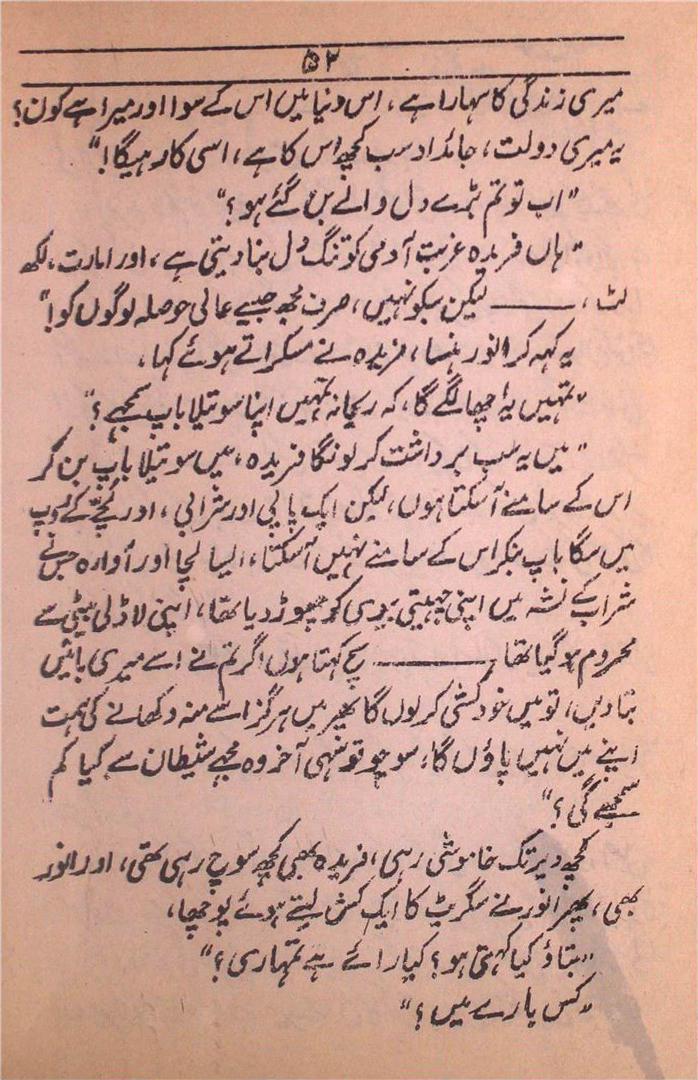 ۵۲
میری زندگی کا سہارا ہے، اس دنیا میں اس کے سوا اور میرا ہے کون؟
یہ میری دولت، جائداد سب کچھ اس کا ہے، اسی کا رہیگا!"
"اب تو تم بڑے دل والے بن گئے ہو؟"
"ہاں فریدہ غربت آدمی کو تنگ دل بنا دیتی ہے، اور امارت، لکھ
لٹ، ——— لیکن سبکو نہیں، صرف مجھ جیسے عالی حوصلہ لوگوں کو!"
یہ کہہ کر انور ہنسا، فریدہ نے مسکراتے ہوئے کہا،
"تمہیں یہ اچھا لگے گا، کہ ریحانہ تمہیں اپنا سوتیلا باپ سمجھے؟"
"میں یہ سب برداشت کر لونگا فریدہ، میں سوتیلا باپ بن کر
اس کے سامنے آ سکتا ہوں، لیکن ایک پاپی اور شرابی، اور لچے کے روپ
میں سگا باپ بنکر اس کے سامنے نہیں آ سکتا، ایسا لچا اور آوارہ جس نے
شراب کے نشہ میں اپنی چہیتی بیوی کو چھوڑ دیا تھا، اپنی لاڈلی بیٹی سے
محروم ہو گیا تھا، ——— سچ کہتا ہوں اگر تم نے اسے میری باتیں
بتا دیں، تو میں خودکشی کر لوں گا پھر میں ہرگز اسے منہ دکھانے کی ہمت
اپنے میں نہیں پاؤں گا، سوچو تو سہی آخر وہ مجھے شیطان سے کیا کم
سمجھے گی؟"
کچھ دیر تک خاموشی رہی، فریدہ بھی کچھ سوچ رہی تھی، اور انور
بھی، پھر انور نے سگریٹ کا ایک کش لیتے ہوئے پوچھا،
"بتاؤ کیا کہتی ہو؟ کیا رائے ہے تمہاری؟"
"کس بارے میں؟"